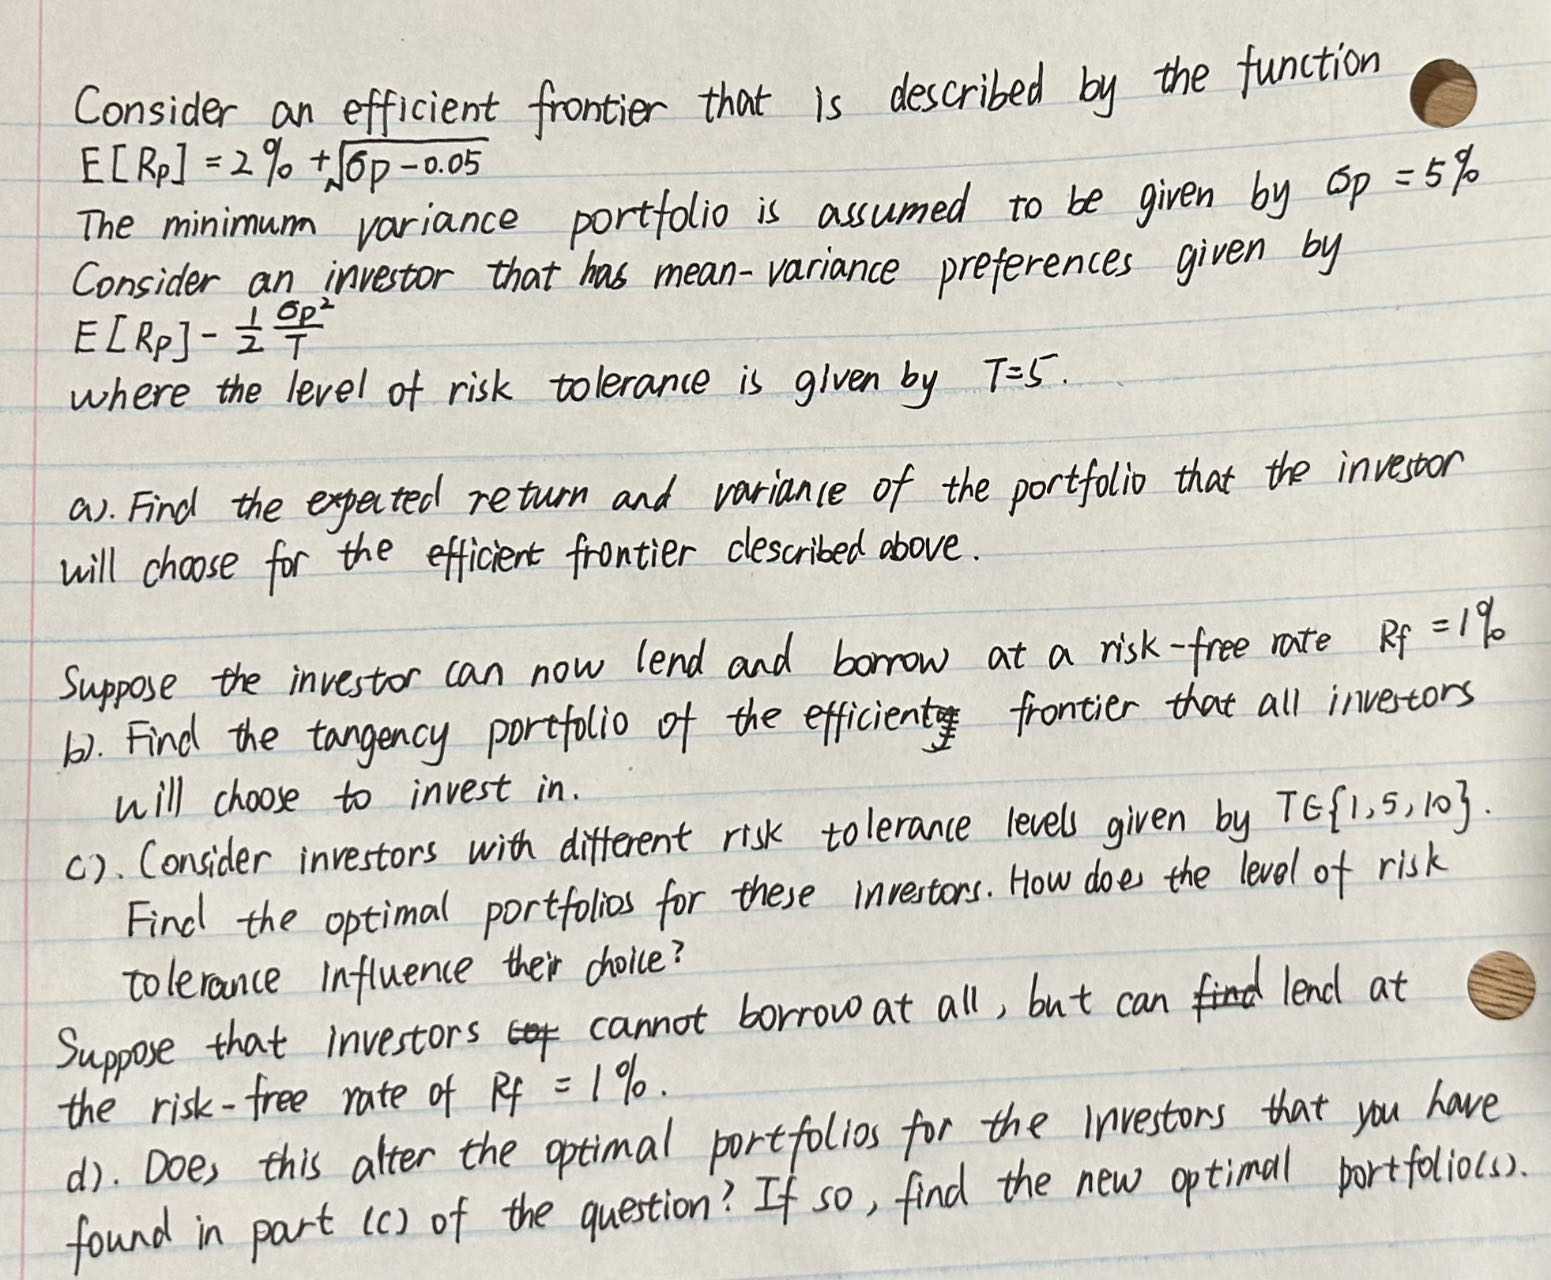 Consider an efficient frontier that is described by the function
E[Rp] = 2% + √(σp - 0.05)
The minimum variance portfolio is assumed to be given by σp = 5%
Consider an investor that has mean-variance preferences given by
E[Rp] - 1/2 σp²/T
where the level of risk tolerance is given by T=5.
a). Find the expected return and variance of the portfolio that the investor
will choose for the efficient frontier described above.
Suppose the investor can now lend and borrow at a risk-free rate Rf = 1%
b). Find the tangency portfolio of the efficient frontier that all investors
will choose to invest in.
c). Consider investors with different risk tolerance levels given by T∈{1,5,10}.
Find the optimal portfolios for these investors. How does the level of risk
tolerance influence their choice?
Suppose that investors cannot borrow at all, but can lend at
the risk-free rate of Rf = 1%.
d). Does this alter the optimal portfolios for the investors that you have
found in part (c) of the question? If so, find the new optimal portfolio(s).